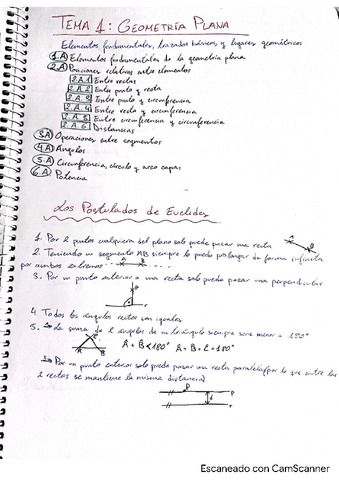 TEMA 1: GEOMETRÍA PLANA
Elementos fundamentales, trazados básicos, y lugares geométricos
1.A) Elementos fundamentales de la geometría plana
2.A) Posiciones relativas entre elementos
2.A.1 Entre rectas
2.A.2 Entre punto y recta
2.A.3 Entre punto y circunferencia
2.A.4 Entre recta y circunferencia
2.A.5 Entre circunferencia y circunferencia
2.A.6 Distancias
3.A) Operaciones entre segmentos
4.A) Ángulos
5.A) Circunferencia, círculo y arco capaz
6.A) Potencia
Los Postulados de Euclides
1. Por 2 puntos cualquiera del plano solo puede pasar una recta
A B
2. Teniendo un segmento AB siempre lo puedo prolongar de forma infinita
por ambos extremos
A B
3. Por un punto exterior a una recta solo puede pasar una perpendicular
P
r
4. Todos los ángulos rectos son iguales
5. La suma de 2 ángulos de un triángulo siempre será menor a 180°
C
A B
A + B < 180° A + B + C = 180°
Por un punto exterior solo puedo pasar una recta paralela (por lo que entre las
2 rectas se mantiene la misma distancia)
P
d
r
Escaneado con CamScanner